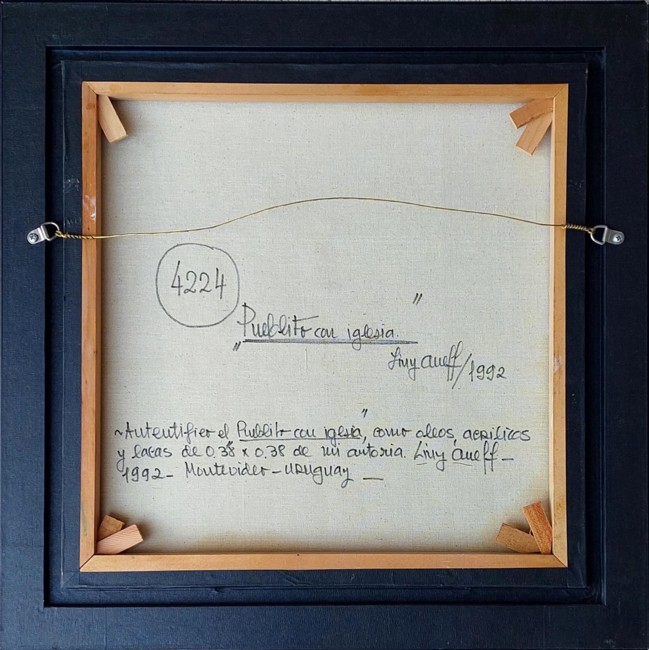 4224
"Pueblito con iglesia."
Liny Aueff/1992
~Autentifico el "Pueblito con iglesia", como oleos, acrilicos
y lacas de 0.38 x 0.38 de mi autoria. Liny Aueff_
1992_ Montevideo_URUGUAY_